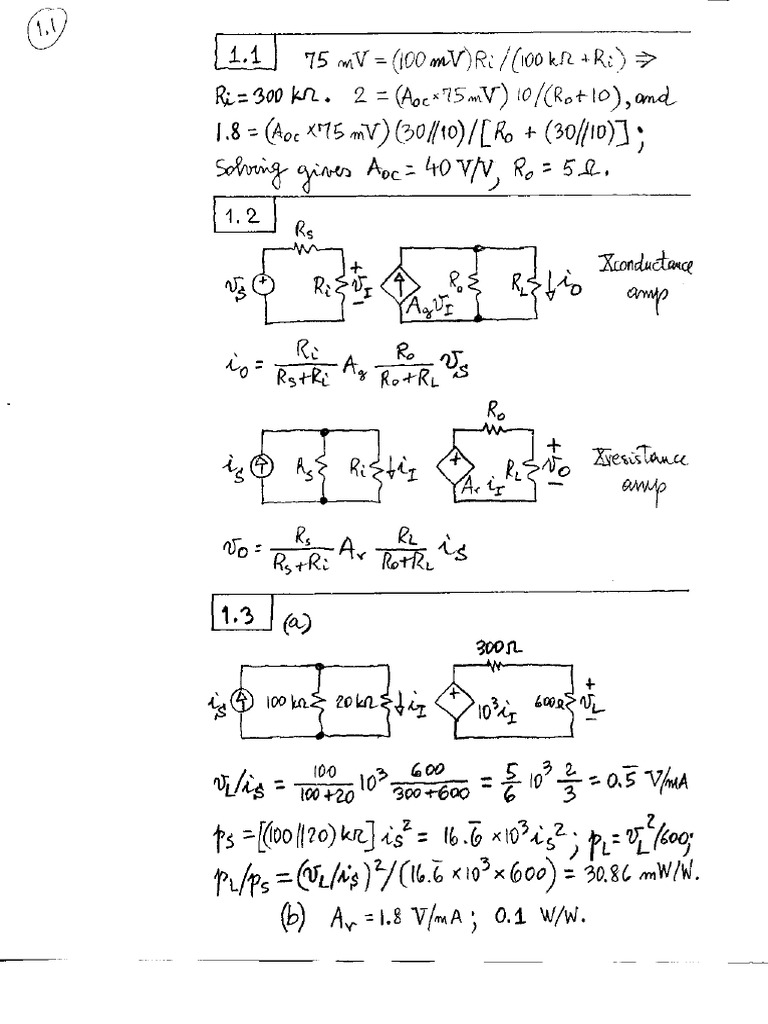 1.1
1.1 75 mV = (100 mV)Ri/(100 kΩ + Ri) ⇒
Ri = 300 kΩ. 2 = (Aoc × 75 mV) 10/(Ro+10), and
1.8 = (Aoc × 75 mV)(30//10)/[Ro + (30//10)];
Solving gives Aoc = 40 V/V, Ro = 5 Ω.
1.2
Rs
vS + Ri + vI − AgvI Ro RL iO
Xconductance
amp
iO = Ri/(Rs+Ri) Ag Ro/(Ro+RL) vS
Ro
iS As Ri iI + Ar iI RL + vO −
Xresistance
amp
vO = Rs/(Rs+Ri) Ar RL/(Ro+RL) iS
1.3 (a)
300Ω
iS 100 kΩ 20 kΩ iI + 10³iI 600Ω + vL −
vL/iS = 100/(100+20) 10³ 600/(300+600) = 5/6 10³ 2/3 = 0.5̅ V/mA
pS = [(100//20) kΩ] iS² = 16.6̅ × 10³ iS²; pL = vL²/600;
pL/pS = (vL/iS)²/(16.6̅ × 10³ × 600) = 30.86 mW/W.
(b) Ar = 1.8 V/mA; 0.1 W/W.